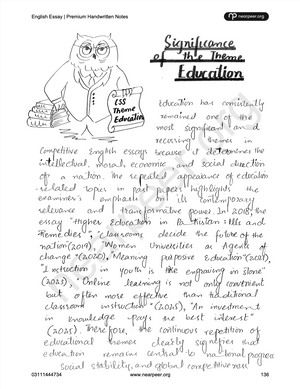 English Essay | Premium Handwritten Notes
nearpeer.org
Significance
of the Theme
Education
CSS
Theme
Education
Education has consistently
remained one of the
most significant and
recurring themes in
Competitive English essays because it determines the
intellectual, moral, economic, and social direction
of a nation. The repeated appearance of education
-related topics in past papers highlights the
examiner's emphasis on its contemporary
relevance and transformative power. In 2018, the
essay "Higher Education in Pakistan: Ills and
Remedies"; "Classrooms decide the future of the
nation" (2019), "Women Universities as Agents of
change" (2020), "Meaning purposive Education" (2021),
"Instruction in youth is like engraving in stone"
(2023), "Online learning is not only convenient
but often more effective than traditional
classroom instruction" (2025), "An investment
in knowledge pays the best interest"
(2025). Therefore, the continuous repetition of
educational themes clearly signifies that
education remains central to national progress
social stability, and global competitiveness
03111444734
www.nearpeer.org
136